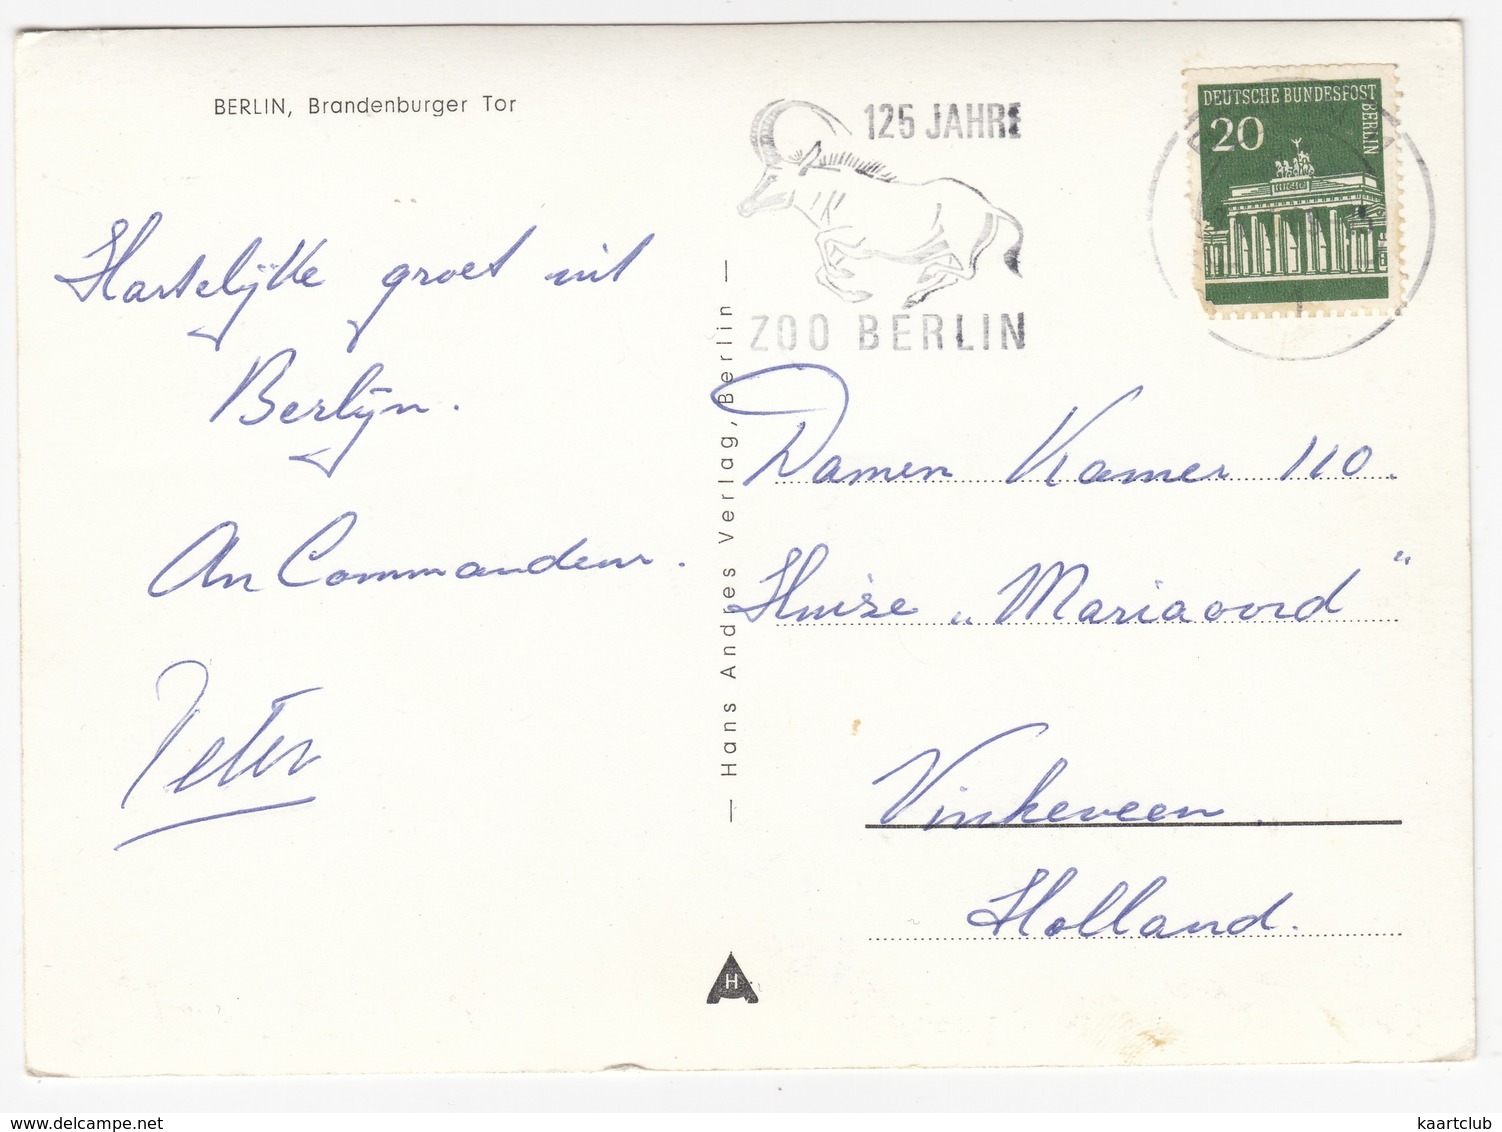 BERLIN, Brandenburger Tor
Hartelijke groet uit
Berlijn.
An Commandeur.
Peter
— Hans Andres Verlag, Berlin —
H
125 JAHRE
ZOO BERLIN
DEUTSCHE BUNDESPOST
BERLIN
20
Damen Kamer 110.
Huize „Mariaoord"
Vinkeveen.
Holland.
kaartclub